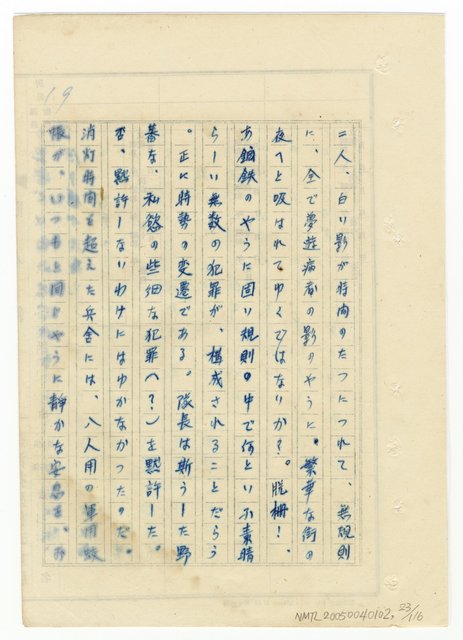 二人、白い影が時間のたつにつれて、無規則
に、全で夢遊病者の影のやうに。繁華な街の
夜へと吸はれてゆくではないか?。脱柵!、
あ鋼鉄のやうに固い規則の中で何といふ素晴
らしい無数の犯罪が、構成されることだらう
。正に時勢の変遷である。隊長は斯うした野
蕃な、私慾の些細な犯罪へ?)を黙許した。
否、黙許しないわけにはゆかなかつたのだ。
消灯時間を超えた兵舎には、八人用の軍用蚊
帳が、いつもと同じやうに静かな安息を、お
19
NMTL20050040102, 23/116